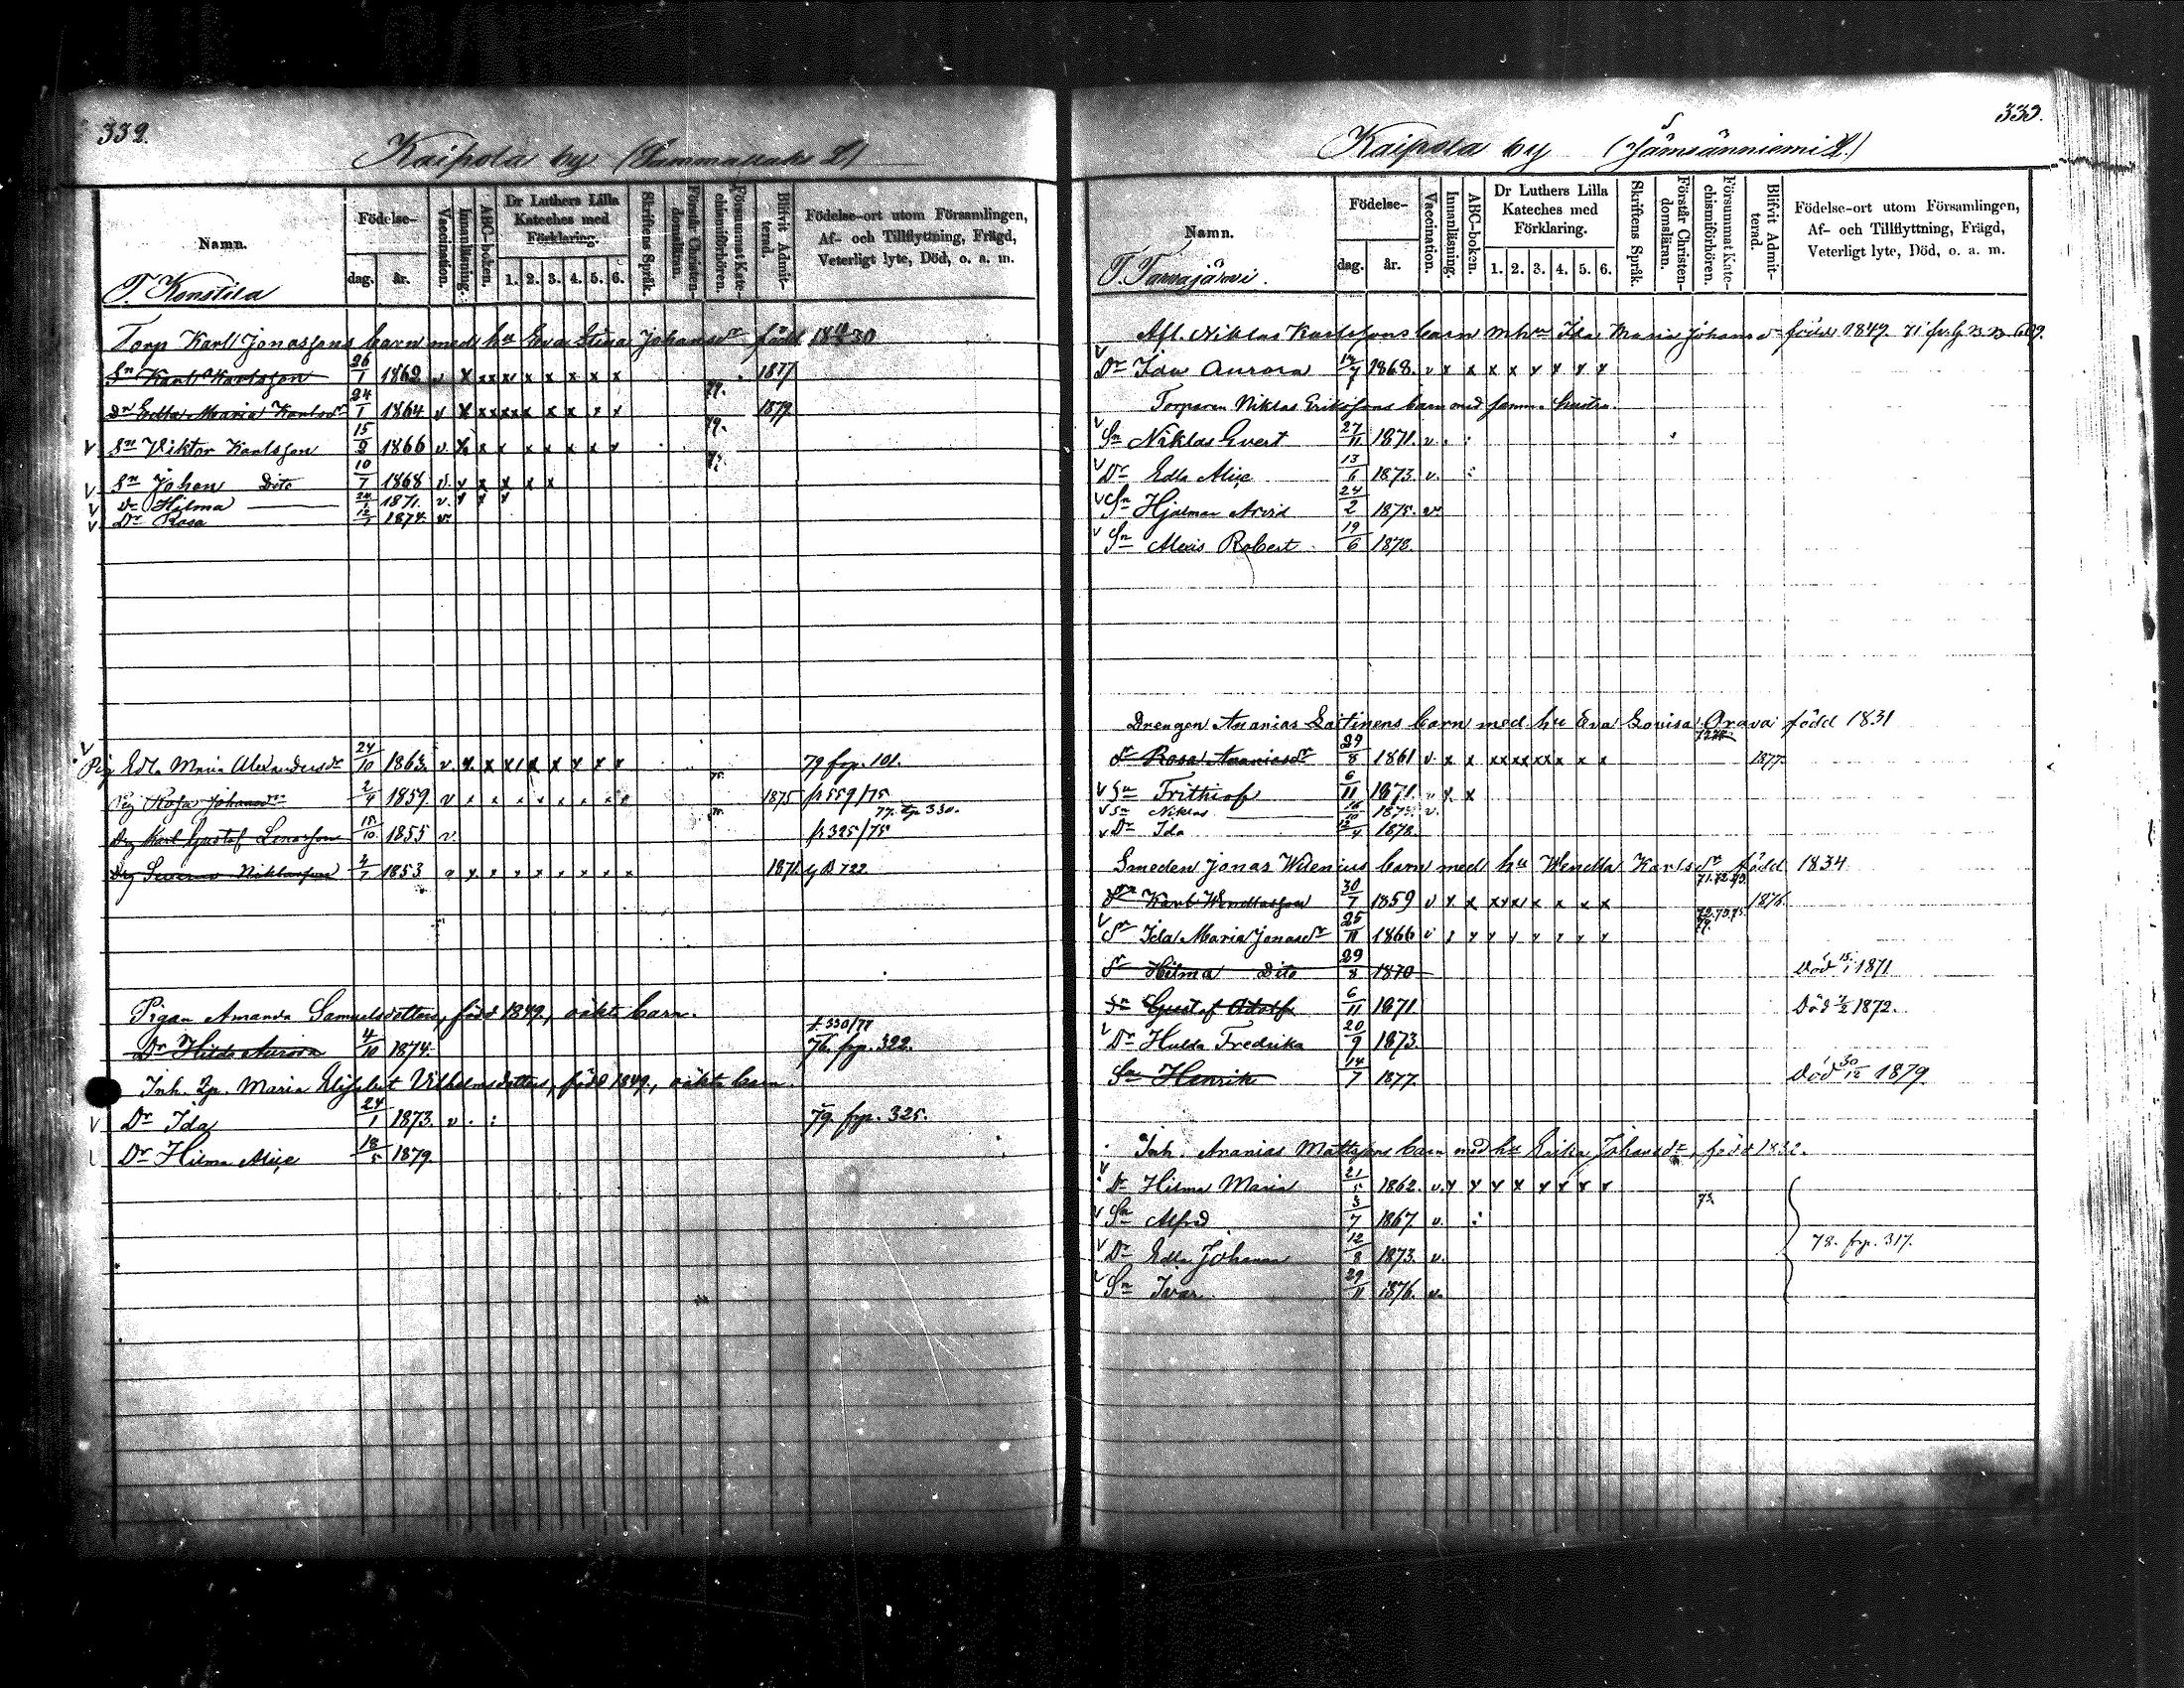 332.
Kaipola by (Sammallaks L)
Namn.
Födelse-
dag.
år.
Vaccination.
Innanläsning.
ABC-boken.
Dr Luthers Lilla Kateches med Förklaring.
1. 2. 3. 4. 5. 6.
Skriftens Språk.
Förstår Christendomsläran.
Försummat Katechismiförhören.
Blifvit Admitterad.
Födelse-ort utom Församlingen, Af- och Tillflyttning, Frägd, Veterligt lyte, Död, o. a. m.
T. Konstila
Torp Karl Jonassons barn med hu Eva Stina Johansdr född 1830
Sn Karl Karlsson 26/1 1862 v x x x x x x x x x 79. 1877
Dr Edla Maria Karlsdr 24/1 1864 v x x x x x x x x x 79. 1879
v Sn Viktor Karlsson 15/2 1866 v x x x x x x x x
v Sn Johan Dito 10/7 1868 v. x x x x x
v Dr Hilma 24/1 1871. v. x x x
v Dr Rosa 12/1 1874 v
v Pig Edla Maria Alexandersdr 24/10 1863. v. x x x x x x x x x 79 frp. 101.
Pig Rosa Johansdr 2/4 1859. v x x x x x x x x 75. 1875 p 559/75
77. tp. 330.
Drg Karl Gustaf Lenasson 15/10 1855 v. p 325/75
Drg Severus Niklasson 4/7 1853 v x x x x x x x x 1871. g B 722
Pigan Amanda Samuelsdotters, född 1849, oäkta barn.
Dr Hilda Aurora 4/10 1874. t. 330/77
76. frp. 322.
Inh. Qp. Maria Elisabet Vilhelmsdotters, född 1849, oäkta barn.
v Dr Ida 24/1 1873. v . : 79. frp. 325.
Dr Hilma Alice 18/5 1879.
333.
Kaipola by (Jämsänniemi L.)
Namn.
Födelse-
dag.
år.
Vaccination.
Innanläsning.
ABC-boken.
Dr Luthers Lilla Kateches med Förklaring.
1. 2. 3. 4. 5. 6.
Skriftens Språk.
Förstår Christendomsläran.
Försummat Katechismiförhören.
Blifvit Admitterad.
Födelse-ort utom Församlingen, Af- och Tillflyttning, Frägd, Veterligt lyte, Död, o. a. m.
T. Tammajärvi.
Afl. Niklas Karlssons barn m hu Ida Maria Johansdr född 1849. 71 fr. g. B. B. 609.
v Dr Ida Aurora 14/7 1868. v x x x x x x x x
Torparen Niklas Erikssons barn med samma hustru.
v Sn Niklas Evert 27/11 1871. v. . :
v Dr Edla Alice 13/6 1873. v. :
v Sn Hjalmar Arvid 24/2 1875. v
v Sn Alexis Robert 19/6 1878.
Drengen Ananias Laitinens barn med hu Eva Lovisa Orava född 1831
Dr Rosa Ananiasdr 29/8 1861 v x x x x x x x x x 1877.
v Sn Frithiof 6/11 1871. v x x
v Sn Niklas 16/10 1875. v.
v Dr Ida 12/4 1878.
Smeden Jonas Widenius barn med hu Wendla Karlsdr född 1834
71.72.73.
Sn Karl Wendlasson 30/7 1859 v x x x x x x x x 1876.
v Dr Ida Maria Jonasdr 25/11 1866 v x x x x x x x x 72.73.75.
79.
Dr Hilma Dito 29/8 1870 Död 15/1 1871
Sn Gustaf Adolf 6/11 1871 Död 7/2 1872.
v Dr Hulda Fredrika 20/9 1873.
Sn Henrik 14/7 1877. Död 30/12 1879.
Inh. Ananias Mattssons barn med hu Erika Johansdr, född 1832.
v Dr Hilma Maria 21/5 1862. v x x x x x x x x 73.
v Sn Alfred 3/7 1867 v. :
v Dr Edla Johanna 12/8 1873. v. 78. frp. 317.
v Sn Ivar. 29/11 1876. v.